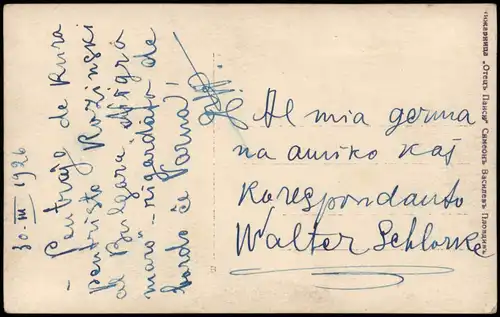 30-III 1926
- Pentraĵo de kura
pentristo Rozinski
el Bulgara „Nigra
maro" - rigardata de
bordo ĉe Varna!
Al mia germa
na amiko kaj
korespondanto
Walter
нижарница „Отецъ Паиси“ Симеонъ Василевъ Пловдивъ